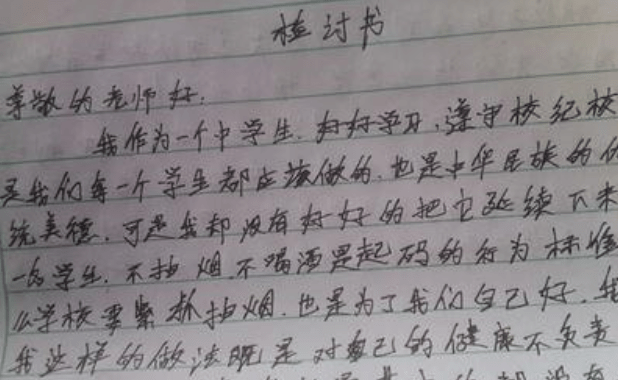 检讨书
尊敬的老师好:
我作为一个中学生.好好学习,遵守校纪校
是我们每一个学生都应该做的.也是中华民族的传
统美德.可是我却没有好好的把它延续下来
一名学生.不抽烟.不喝酒是起码的行为标准
么学校要紧抓抽烟.也是为了我们自己好.
我这样的做法既是对自己的健康不负责